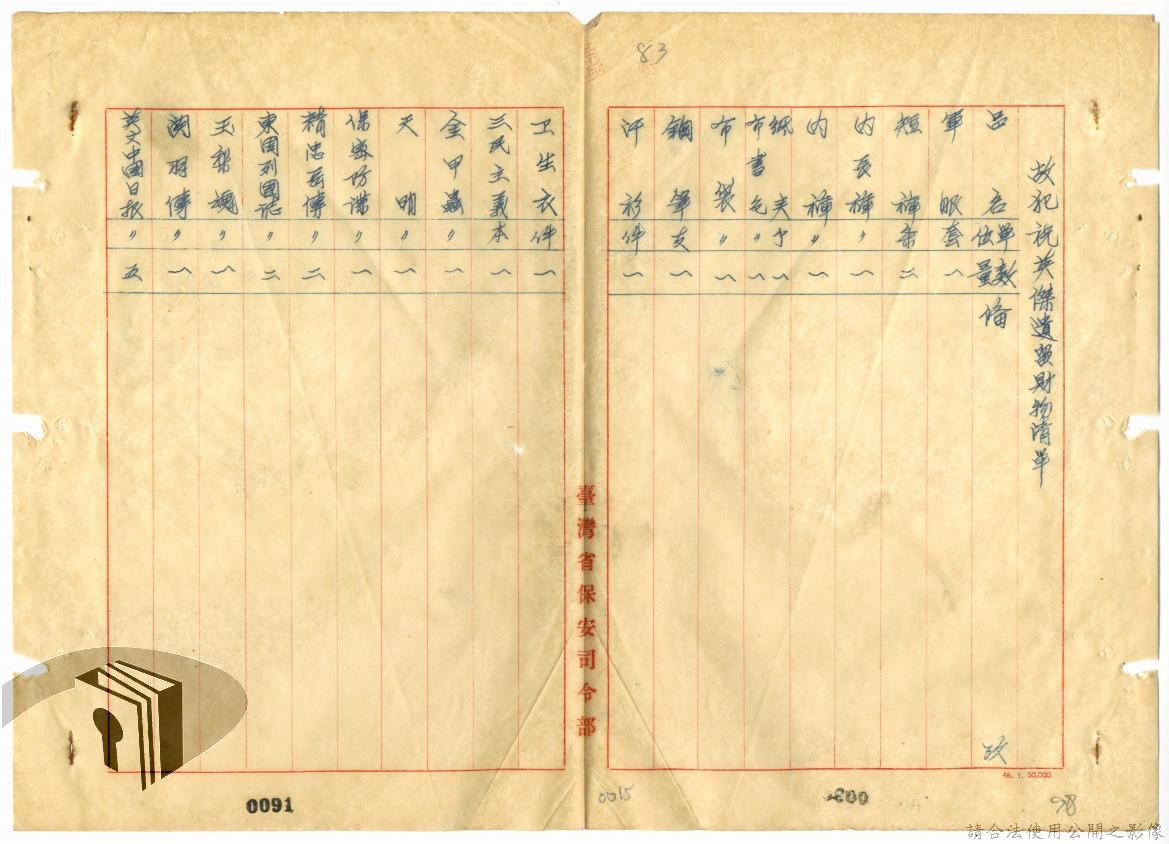 83
故犯祝英傑遺留財物清單
品名 單位 數量 備攷
軍服 套 一
短褲 条 二
內長褲 〃 一
內褲 〃 一
紙夾 个 一
布書包 〃 一
布袋 〃 一
鋼筆 支 一
汗衫 件 一
卫生衣 件 一
三民主義 本 一
金甲蟲 〃 一
天明 〃 一
保密防諜 〃 一
精忠岳傳 〃 二
東周列國誌 〃 二
玉梨魂 〃 一
関羽傳 〃 一
英文中國日報 〃 五
臺灣省保安司令部
46. 1. 50,000
0091
0015
98
請合法使用公開之影像